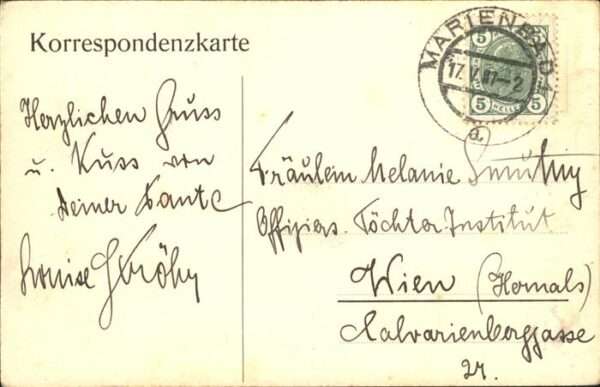 Korrespondenzkarte
MARIENBAD 1
17.V.07-2
a.
5 5
5 HELLER 5
Herzlichen Gruss
u. Kuss von
Deiner Tante
Louise
Fräulein Melanie
Offiziers. Töchter Institut
Wien (Hernals)
Calvarienberggasse